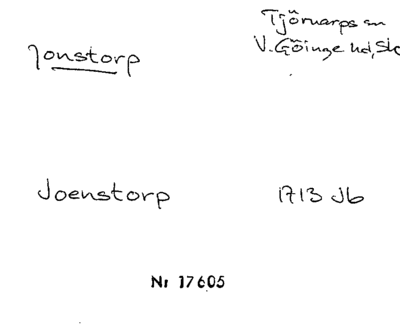 Jonstorp
Tjörnarps sn
V. Göinge hd, Sk
Joenstorp
1713 Jb
Nr 17605